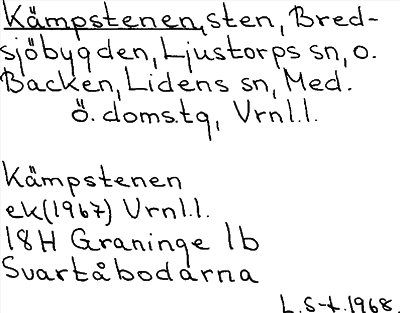 Kämpstenen, sten, Bred-
sjöbygden, Ljustorps sn, o.
Backen, Lidens sn, Med.
Ö. doms.tg, Vrnl.l.
Kämpstenen
ek(1967) Vrnl.l.
18H Graninge 1b
Svartåbodarna
L.S-t.1968.